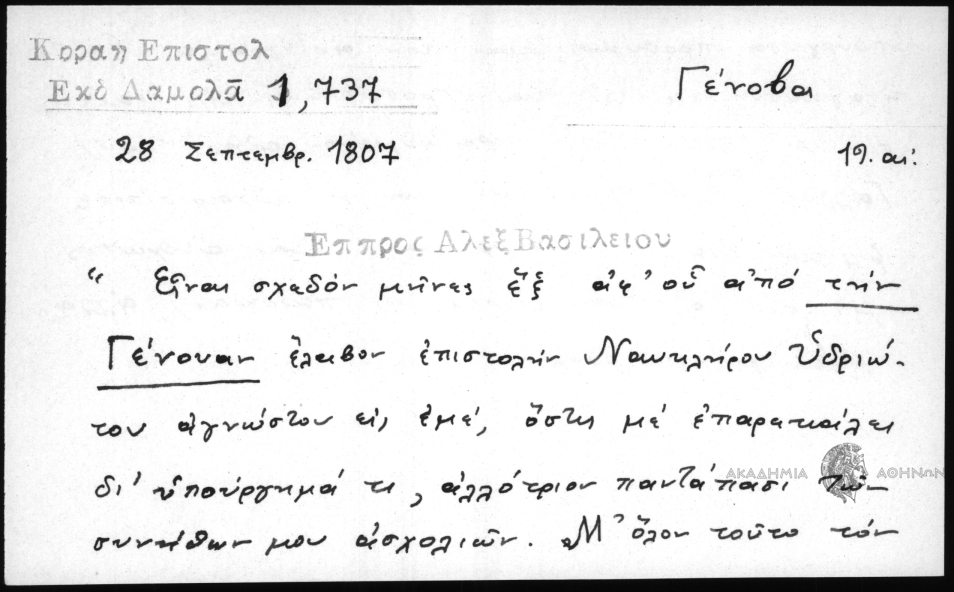 Κοραη Επιστολ
Εκδ Δαμαλᾶ 1, 737
Γένοβα
28 Σεπτεμβρ. 1807
19. αι.
Επ προς Αλεξ Βασιλειου
“ Εἶναι σχεδόν μῆνες ἕξ ἀφ' οὗ ἀπό τήν
Γένουαν ἔλαβον ἐπιστολήν Ναυκλήρου Ὑδριώ-
του ἀγνώστου εἰς ἐμέ, ὅστις μέ ἐπαρεκάλει
δι' ὑπούργημά τι, ἀλλότριον πανταπασι τῶν
συνήθων μου ἀσχολιῶν. Μ' ὅλον τοῦτο τόν
ΑΚΑΔΗΜΙΑ ΑΘΗΝΩΝ